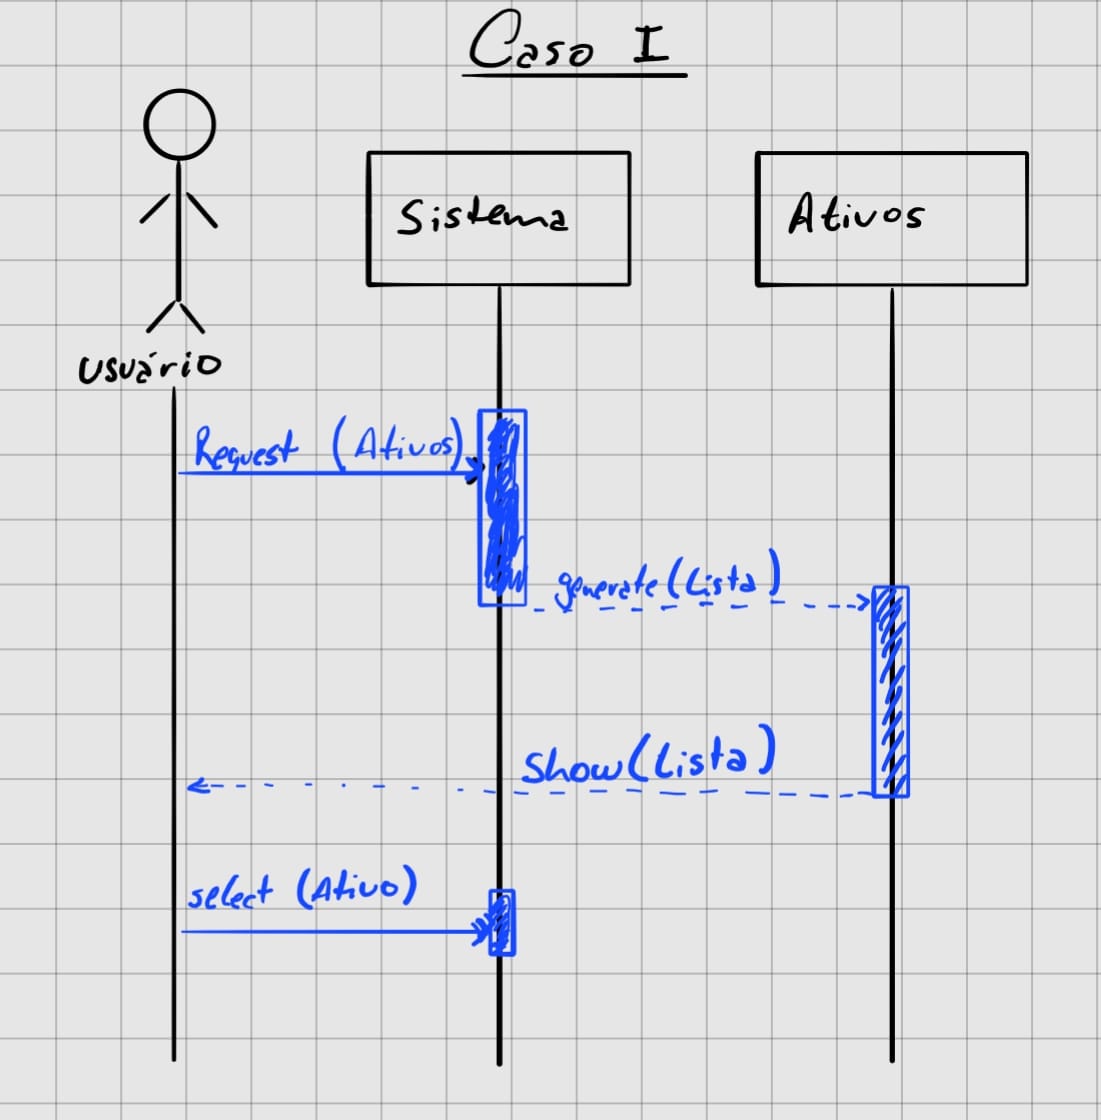 Caso I
Sistema
Ativos
usuário
Request (Ativos)
generate(Lista)
Show(Lista)
select (Ativo)